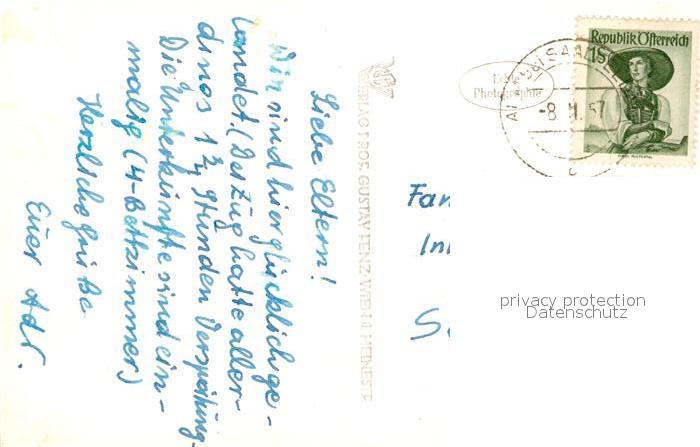 Liebe Eltern!
Wir sind hier glücklich ge-
landet. (Der Zug hatte aller-
dings 1¾ Stunden Verspätung
Die Unterkünfte sind ein-
malig (4-Bettzimmer)
Herzliche Grüße
Euer Adr.
VERLAG PROF. GUSTAV TENZ. WIEN II. HEINESTR
Echte
Photographie
SAALFEL
-8. II. 57
c
Republik Österreich
1S
Fam
In
privacy protection
Datenschutz